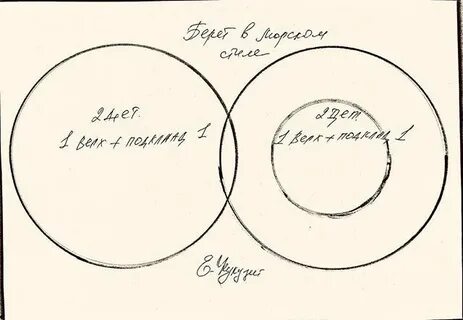 Берет в морском
стиле
2 дет.
1 верх + подклад 1
2 дет
1 верх + подклад 1